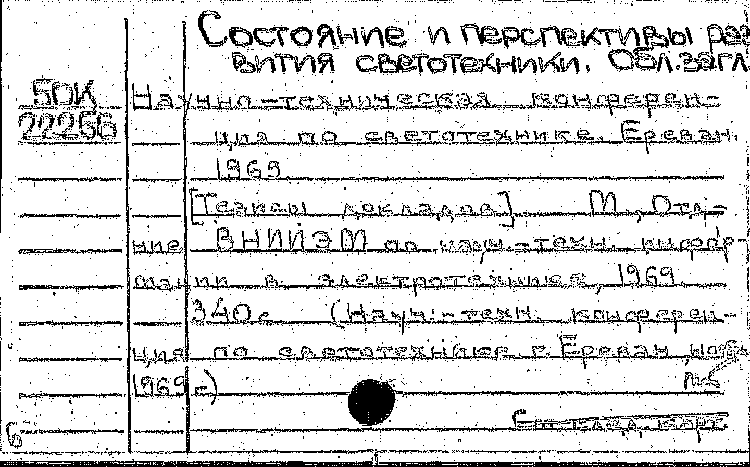 Состояние и перспективы раз
вития светотехники. Обл.загл.
50К
22266
Научно-техническая конферен-
ция по светотехнике. Ереван.
1969
[Тезисы докладов]. М., Отд-
ние ВНИИЭМ по науч.-техн. информ-
ации в электротехнике, 1969.
340с. (Науч.-техн. конферен-
ция по светотехнике г. Ереван,
1969 г.)
б